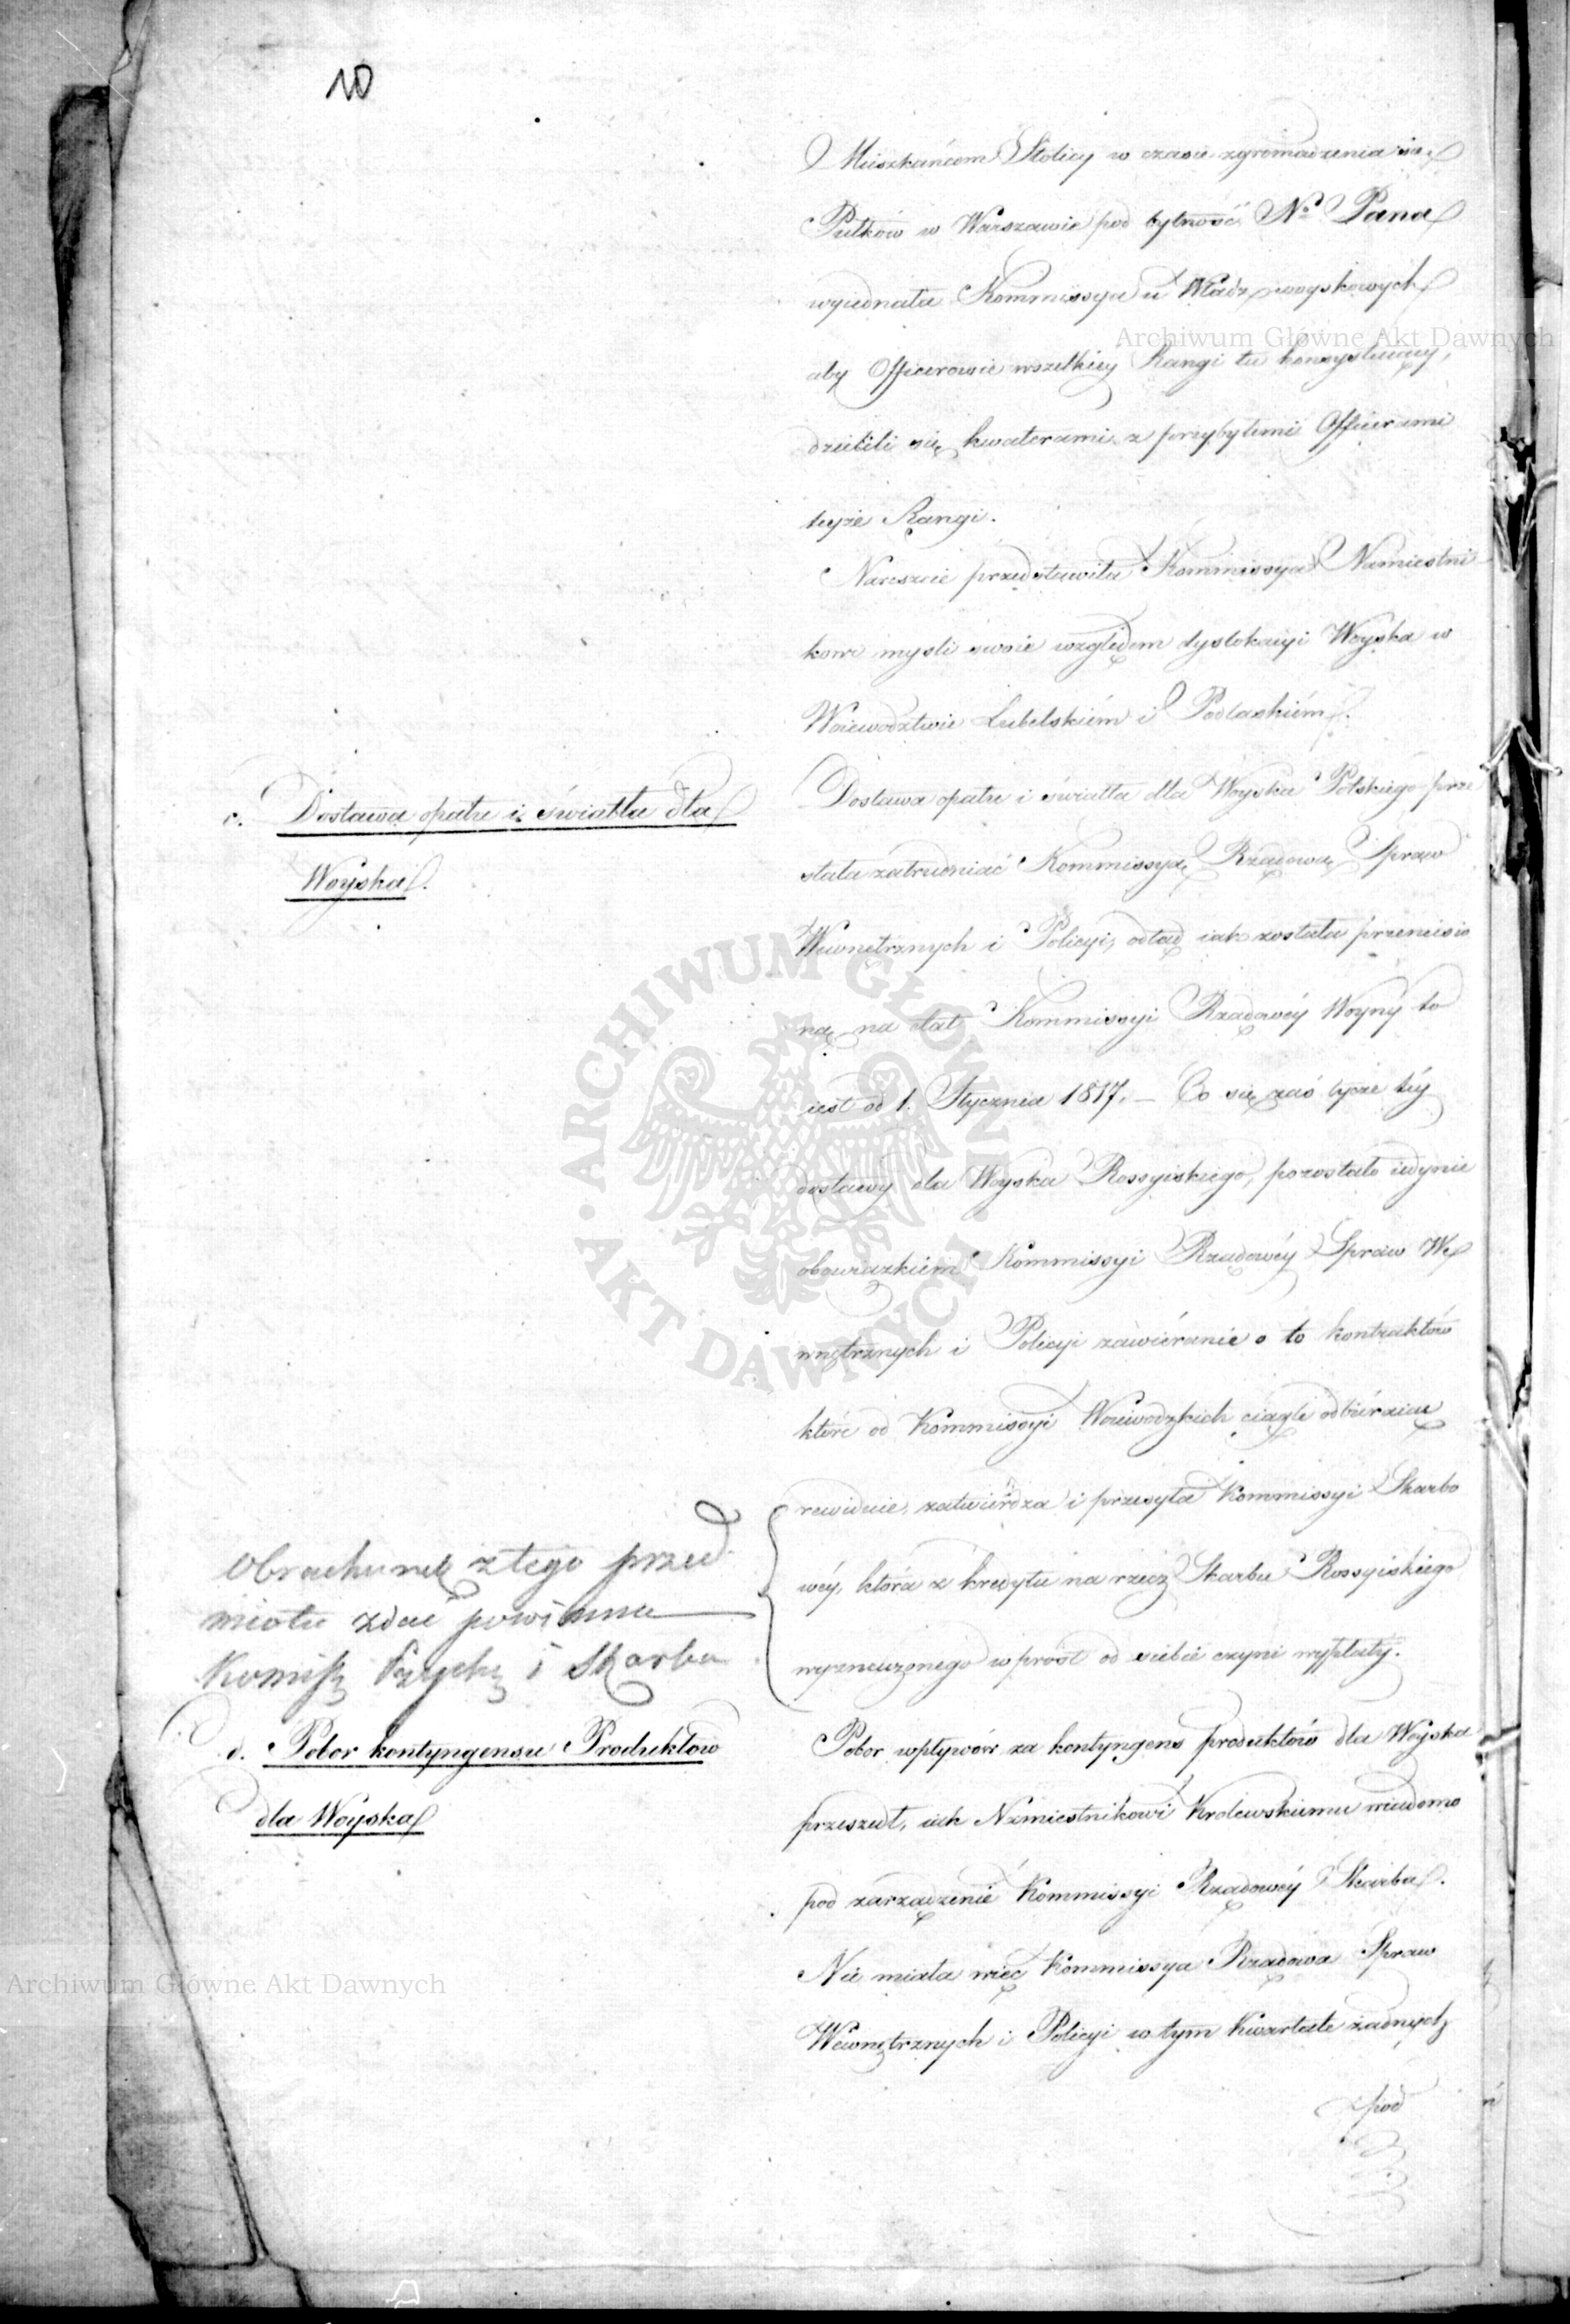 10
Mieszkańcom Stolicy w czasie zgromadzenia się
Pułków w Warszawie pod bytność Nº Pana
wyiednała Kommissya u Władz woyskowych
Archiwum Główne Akt Dawnych
aby Officerowie wszelkiey Rangi tu konsystuiący,
dzielili się kwaterami z przybyłemi Officerami
teyże Rangi.
Nareszcie przedstawiła Kommissya Namiestni
kowi myśli swoie względem dyslokacyi Woyska w
Woiewodztwie Lubelskiém i Podlaskiém.
c. Dostawa opału i światła dla
Woyska.
Dostawa opału i światła dla Woyska Polskiego prze
stała zatrudniać Kommissyą Rządową Spraw
Wewnętrznych i Policyi, odtąd iak została przeniesio
ną na etat Kommissyi Rządowéy Woyny to
iest od 1. Stycznia 1817. — Co się zaś tycze téy
dostawy dla Woyska Rossyiskiego, pozostało iedynie
obowiązkiem Kommissyi Rządowéy Spraw We
wnętrznych i Policyi zawiéranie o to kontraktów
które od Kommissyi Woiewodzkich ciągle odbiéraiąc
rewiduie, zatwiérdza i przesyła Kommissyi Skarbo
wéy, która z kredytu na rzecz Skarbu Rossyiskiego
wyznaczonego wprost od siebie czyni wypłaty.
Obrachunek z tego przed
miotu zdać powinna
Komiss i Skarbu
d. Pobor kontyngensu Produktow
dla Woyska
Pobor wpływów za kontyngens produktów dla Woyska
przeszedł, iak Namiestnikowi Krolewskiemu wiadomo
pod zarządzenie Kommissyi Rządowéy Skarbu.
Nie miała więc Kommissya Rządowa Spraw
Archiwum Główne Akt Dawnych
Wewnętrznych i Policyi w tym Kwartale żadnych
pod
ARCHIWUM GŁÓWNE
· AKT DAWNYCH ·